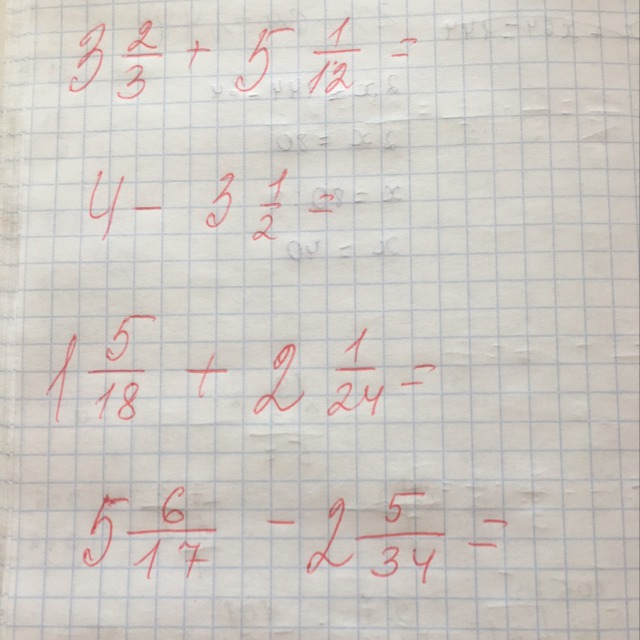 3 2/3 + 5 1/12 =
4 - 3 1/2 =
1 5/18 + 2 1/24 =
5 6/17 - 2 5/34 =